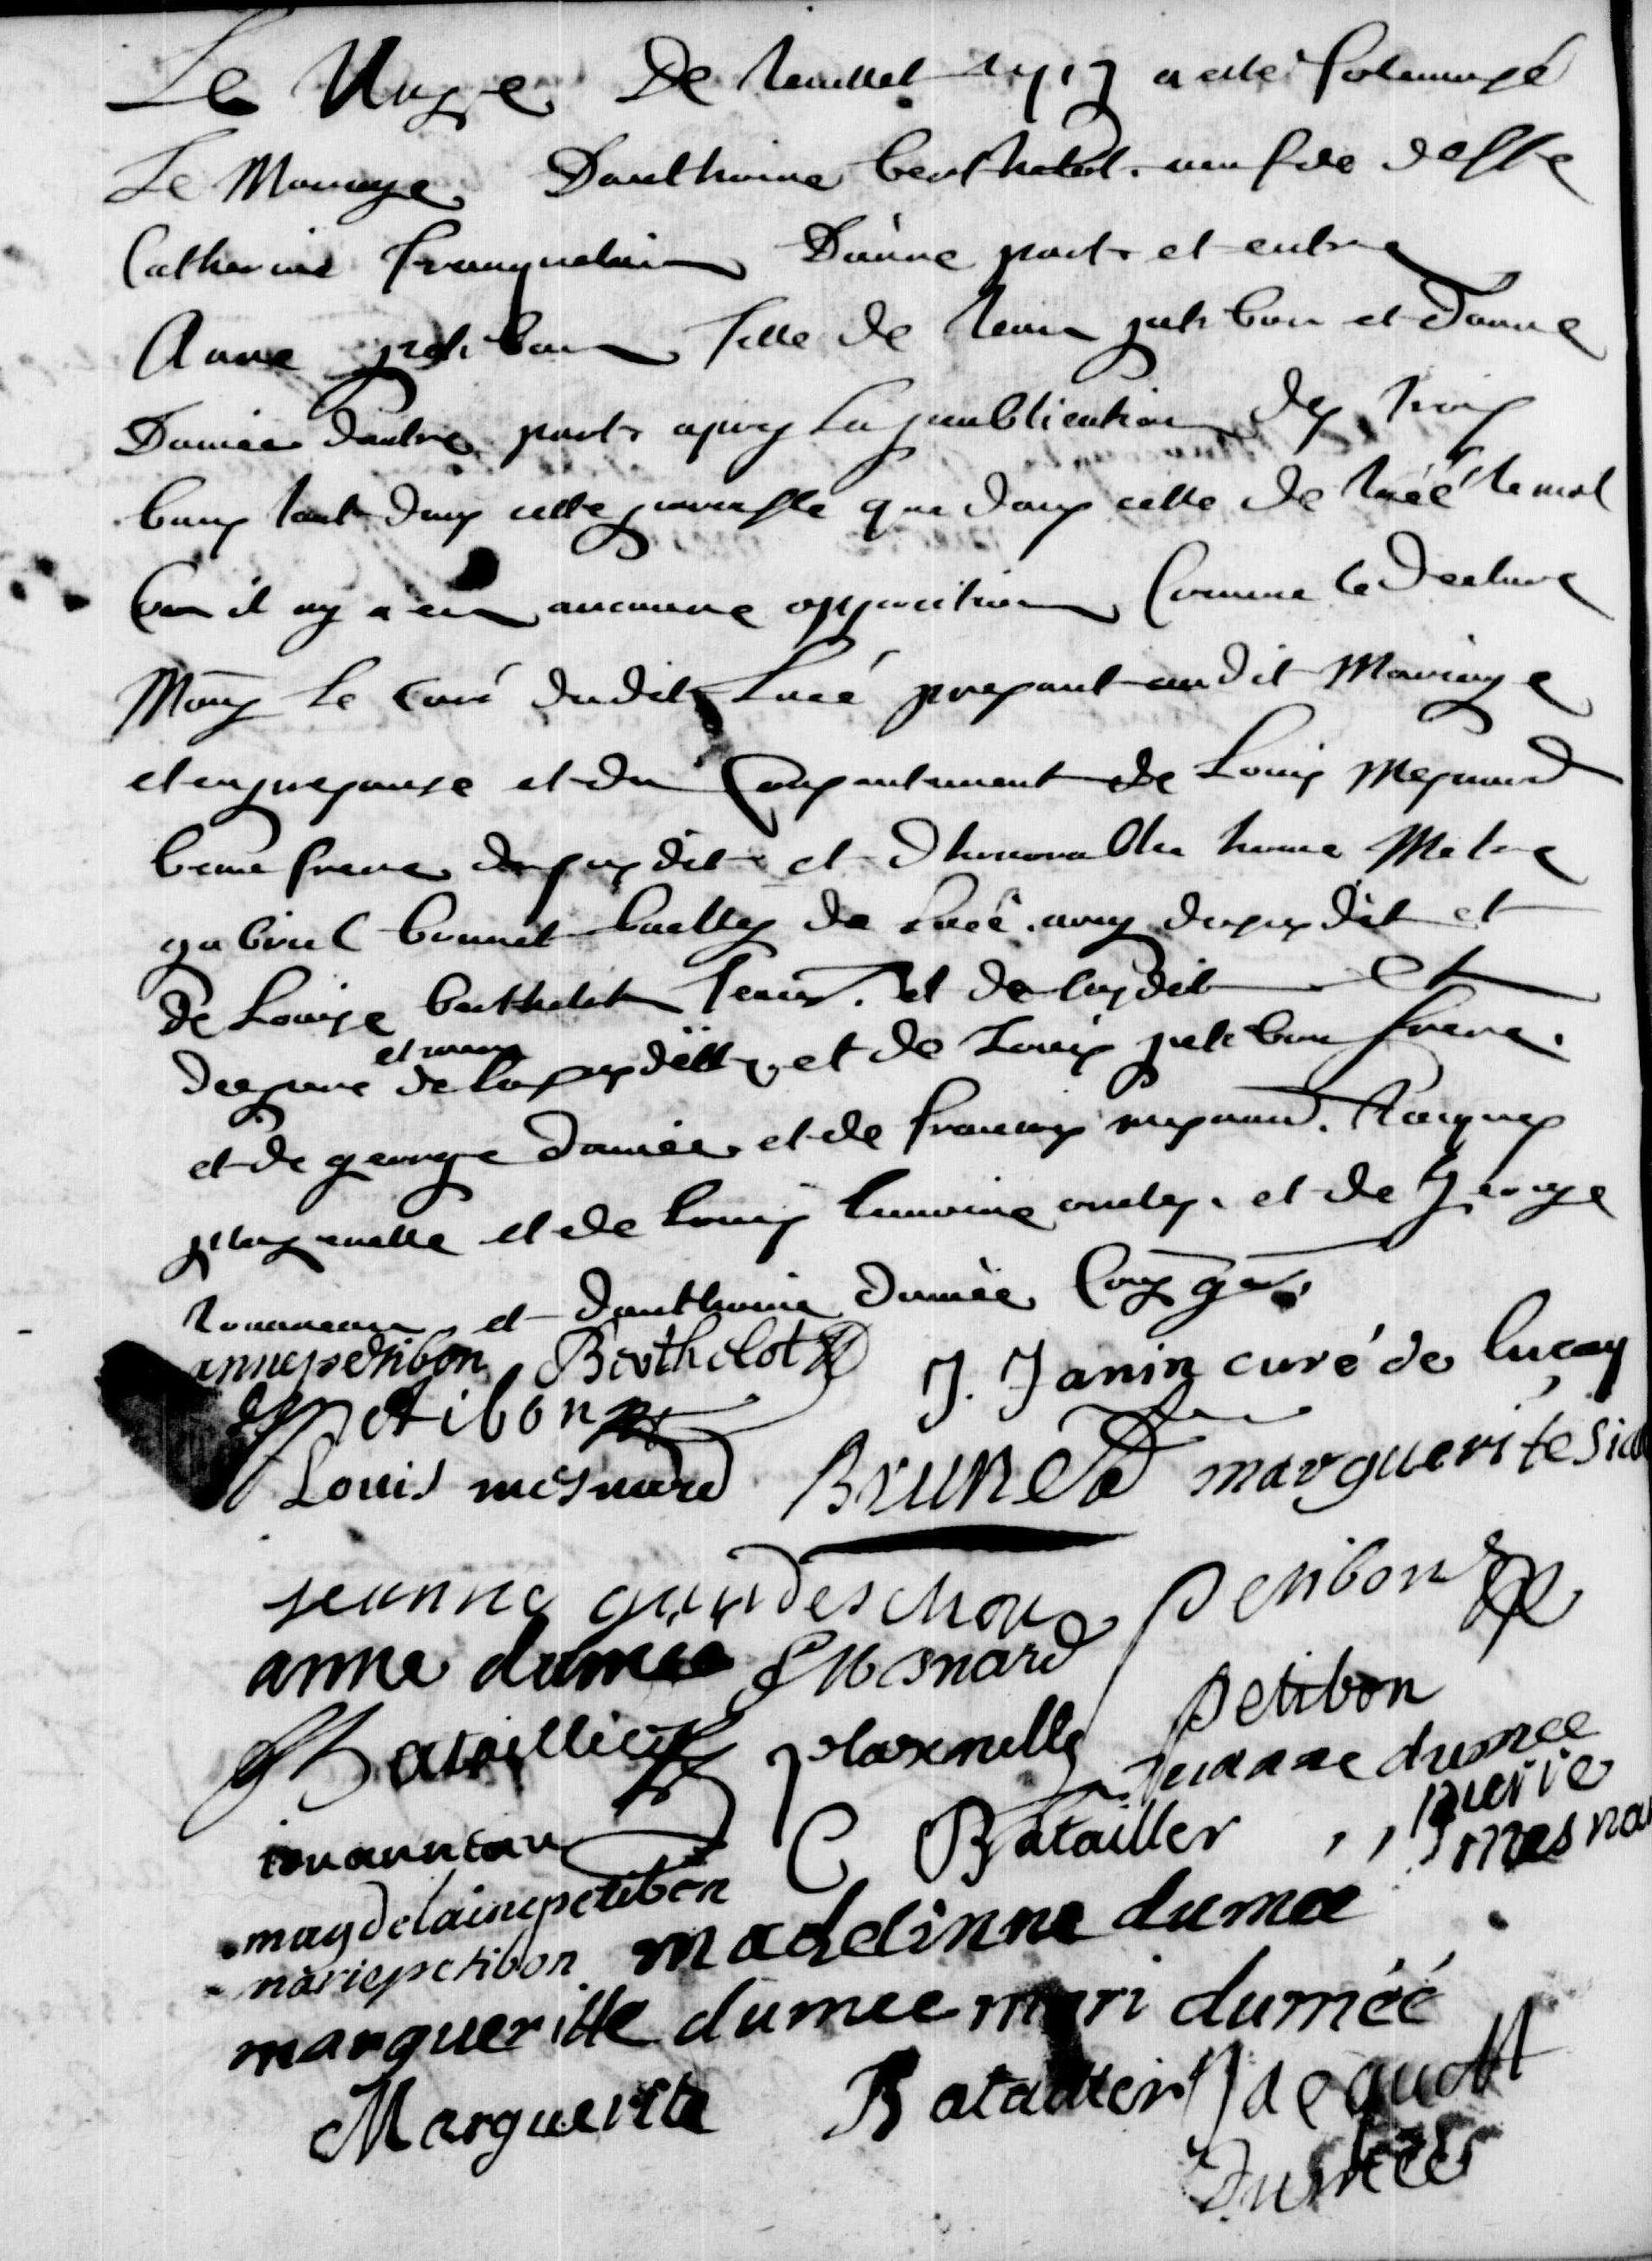 Le Unze de Jeuillet 1717 a esté solemnizé
Le Mariage Danthoine berthelot veuf de deffte
Catherine franquelain D'une part et entre
Anne petibon fille de Jean petibon et Danne
Dumée dautre part apres la publication des trois
bans tant dans cette parroisse que dans celle de lucé le mal
ou il ny a eu aucunne opposition Comme le declare
Mons le Curé dudit lucé present audit Mariage
et en presence et du Consentement de Louis Mesnard
beau frere du susdit et dhonorable homme Metre
gabriel brunet de lucé amy du susdit et
de Louise berthelot seur dudit et
du pere et mere de la susditte et de Louis petibon frere
et de george dumée et de francois mesnard Jacques
plasenelle et de Louis oncles et de George
et danthoine dumée
anne petibon Berthelot J. Janin curé de luçay
petibon
Louis mesnard Brunet marguerite
jeanne deschou petibon
anne dumee Mesnard
Bataillier plasenelle petibon
Jeanne dumee
C Batailler marie
mesna
magdelaine petibon
marie petibon madelinne dumee
margueritte dumee mari dumée
Marguerite Batailler Jacques
Dumées